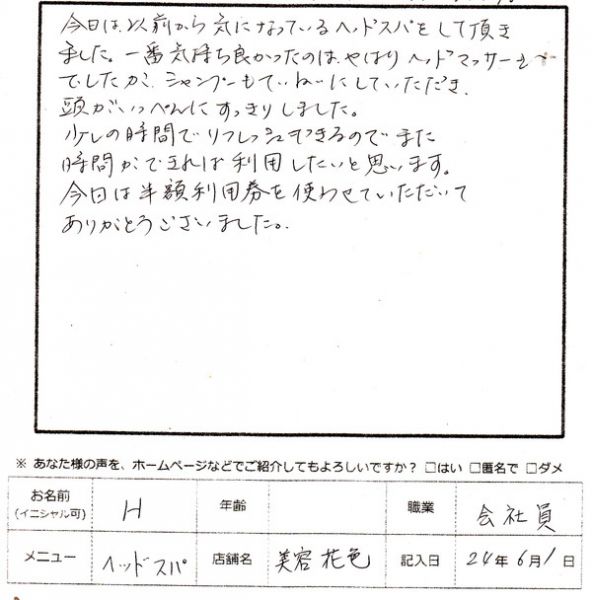 今日は、以前から気になっているヘッドスパをして頂き
ました。一番気持ち良かったのは、やはりヘッドマッサージ
でしたが、シャンプーもていねいにしていただき、
頭がいっぺんにすっきりしました。
少しの時間でリフレッシュできるのでまた
時間ができれば利用したいと思います。
今日は半額利用券を使わせていただいて
ありがとうございました。
※ あなた様の声を、ホームページなどでご紹介してもよろしいですか？ □はい □匿名で □ダメ
お名前 (イニシャル可) H 年齢 職業 会社員
メニュー ヘッドスパ 店舗名 美容花色 記入日 24年6月1日